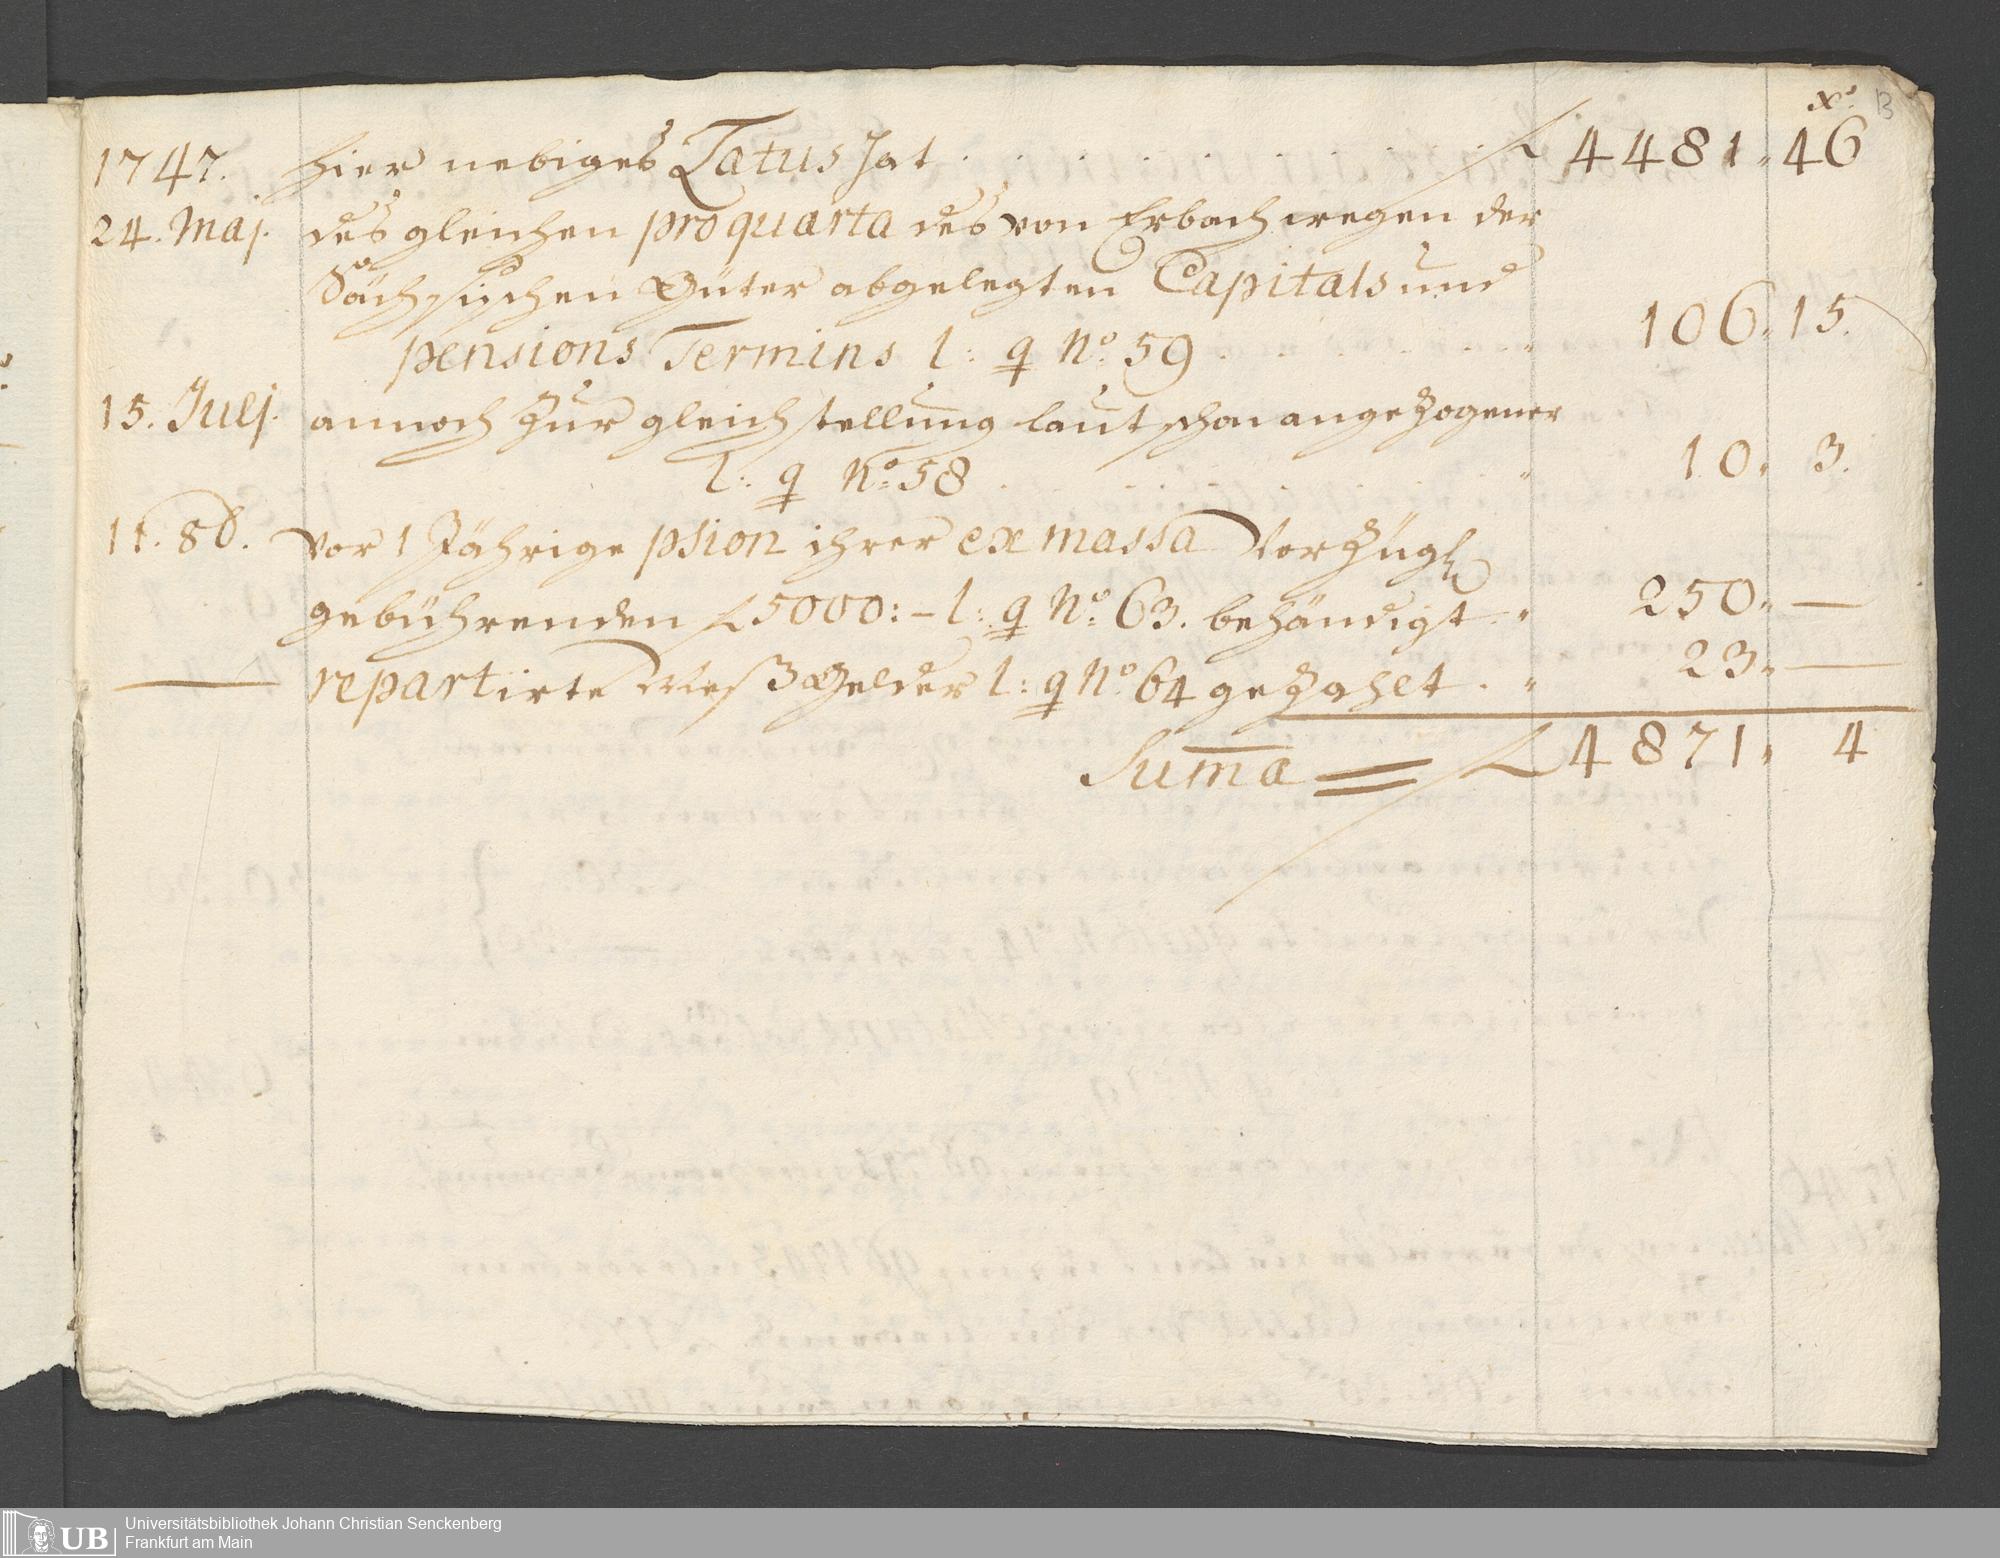 xr. 13
1747. hier nebiges Latus hat . . . . . . . . f 4481 " 46
24. Maj. des gleichen pro quarta des von Erbach wegen der
Sächsischen Güter abgelegten Capitals und
pensions Termins l: q No: 59 . . . . . . " 106 " 15.
15. Julj. annoch zur gleichstellung laut schon angezogener
l: q No: 58 . . . . . . . " 10 " 3.
11. 8b. vor 1 Jährige psion ihrer ex massa vorzügl
gebührenden f 5000: – l: q No: 63. behändigt . " 250 " —
— repartirte Meß Gelder l: q No: 64 gezahlt . " 23 " —
Suma = f 4871 " 4
UB
Universitätsbibliothek Johann Christian Senckenberg
Frankfurt am Main